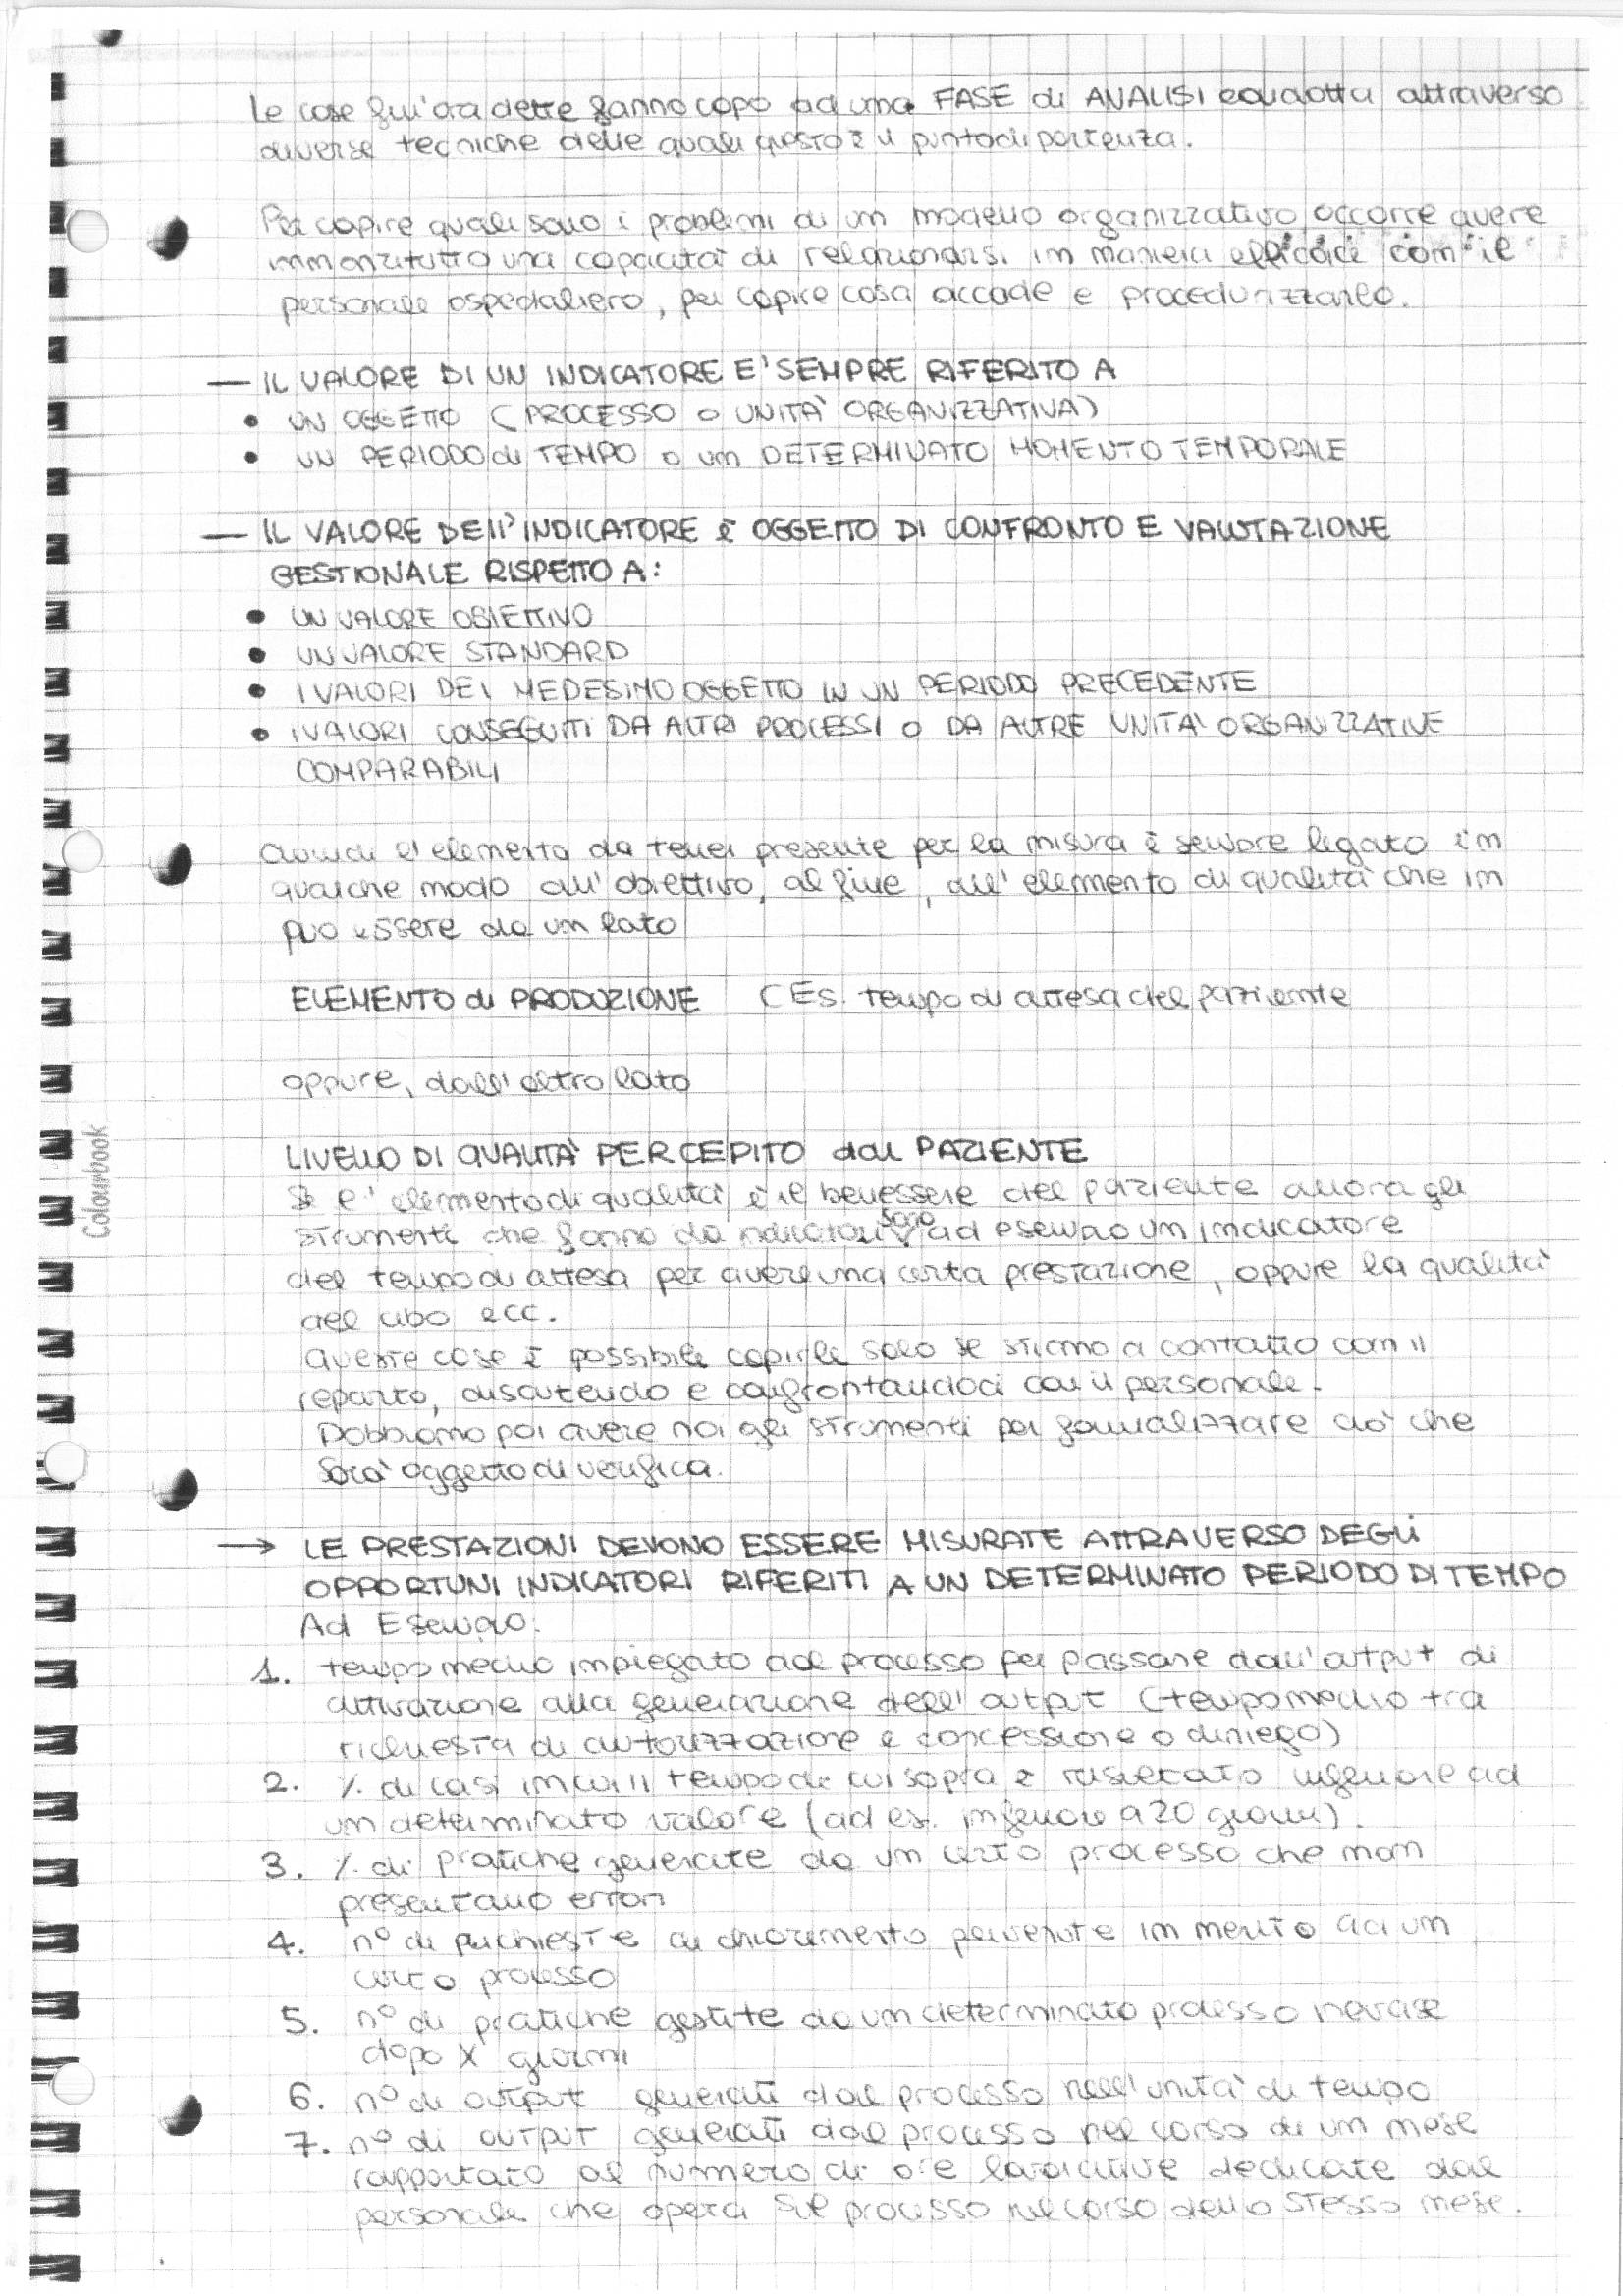 Le cose fin'ora dette fanno capo ad una FASE di ANALISI condotta attraverso
diverse tecniche delle quali questo è il punto di partenza.
Per capire quali sono i problemi di un modello organizzativo occorre avere
innanzitutto una capacità di relazionarsi in maniera efficace con il
personale ospedaliero, per capire cosa accade e procedurizzarlo.
— IL VALORE DI UN INDICATORE E' SEMPRE RIFERITO A
• UN OGGETTO (PROCESSO O UNITA' ORGANIZZATIVA)
• UN PERIODO di TEMPO o un DETERMINATO MOMENTO TEMPORALE
— IL VALORE DEll'INDICATORE è OGGETTO DI CONFRONTO E VALUTAZIONE
GESTIONALE RISPETTO A:
• UN VALORE OBIETTIVO
• UN VALORE STANDARD
• I VALORI DEL MEDESIMO OGGETTO IN UN PERIODO PRECEDENTE
• I VALORI CONSEGUITI DA ALTRI PROCESSI O DA ALTRE UNITA' ORGANIZZATIVE
COMPARABILI
Quindi l'elemento da tener presente per la misura è sempre legato in
qualche modo all'obiettivo, al fine, all'elemento di qualità che in
può essere da un lato
ELEMENTO di PRODUZIONE (Es. tempo di attesa del paziente
oppure, dall'altro lato
LIVELLO DI QUALITA' PERCEPITO dal PAZIENTE
Se l'elemento di qualità è il benessere del paziente allora gli
strumenti che fanno da indicatori sono ad esempio un indicatore
del tempo di attesa per avere una certa prestazione, oppure la qualità
del cibo ecc.
Queste cose è possibile capirle solo se stiamo a contatto con il
reparto, discutendo e confrontandoci con il personale.
Dobbiamo poi avere noi gli strumenti per formalizzare ciò che
sarà oggetto di verifica.
→ LE PRESTAZIONI DEVONO ESSERE MISURATE ATTRAVERSO DEGLI
OPPORTUNI INDICATORI RIFERITI A UN DETERMINATO PERIODO DI TEMPO
Ad Esempio:
1. tempo medio impiegato dal processo per passare dall'output di
attivazione alla generazione dell'output (tempo medio tra
richiesta di autorizzazione e concessione o diniego)
2. % di casi in cui il tempo di cui sopra è risultato inferiore ad
un determinato valore (ad es. inferiore a 20 giorni).
3. % di pratiche generate da un certo processo che non
presentano errori
4. n° di richieste di chiarimento pervenute in merito ad un
certo processo
5. n° di pratiche gestite da un determinato processo nevase
dopo X giorni
6. n° di output generati dal processo nell'unità di tempo
7. n° di output generati dal processo nel corso di un mese
rapportato al numero di ore lavorative dedicate dal
personale che opera sul processo nel corso dello stesso mese.
Colourbook